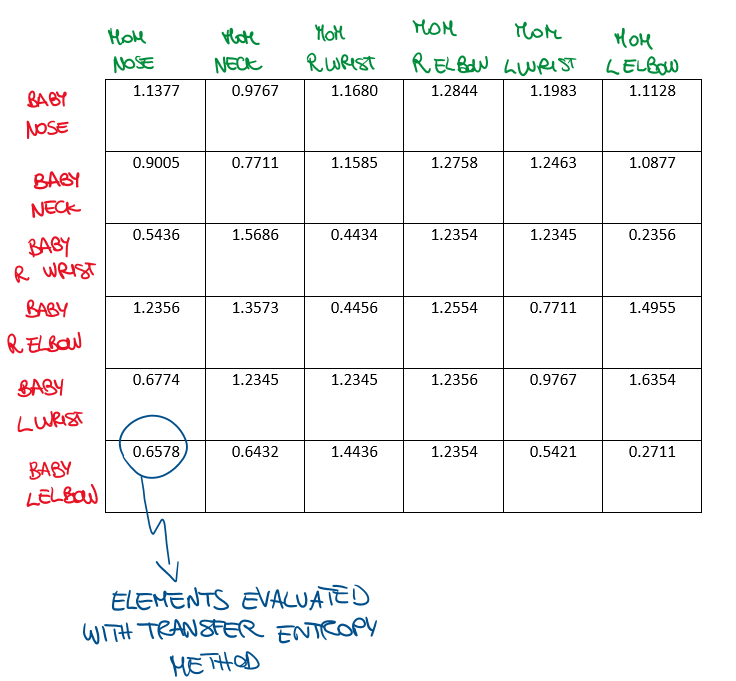 MOM NOSE MOM NECK MOM R WRIST MOM R ELBOW MOM L WRIST MOM L ELBOW
BABY NOSE 1.1377 0.9767 1.1680 1.2844 1.1983 1.1128
BABY NECK 0.9005 0.7711 1.1585 1.2758 1.2463 1.0877
BABY R WRIST 0.5436 1.5686 0.4434 1.2354 1.2345 0.2356
BABY R ELBOW 1.2356 1.3573 0.4456 1.2554 0.7711 1.4955
BABY L WRIST 0.6774 1.2345 1.2345 1.2356 0.9767 1.6354
BABY L ELBOW 0.6578 0.6432 1.4436 1.2354 0.5421 0.2711
ELEMENTS EVALUATED
WITH TRANSFER ENTROPY
METHOD